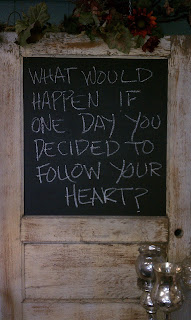 WHAT WOULD
HAPPEN IF
ONE DAY YOU
DECIDED TO
FOLLOW YOUR
HEART?